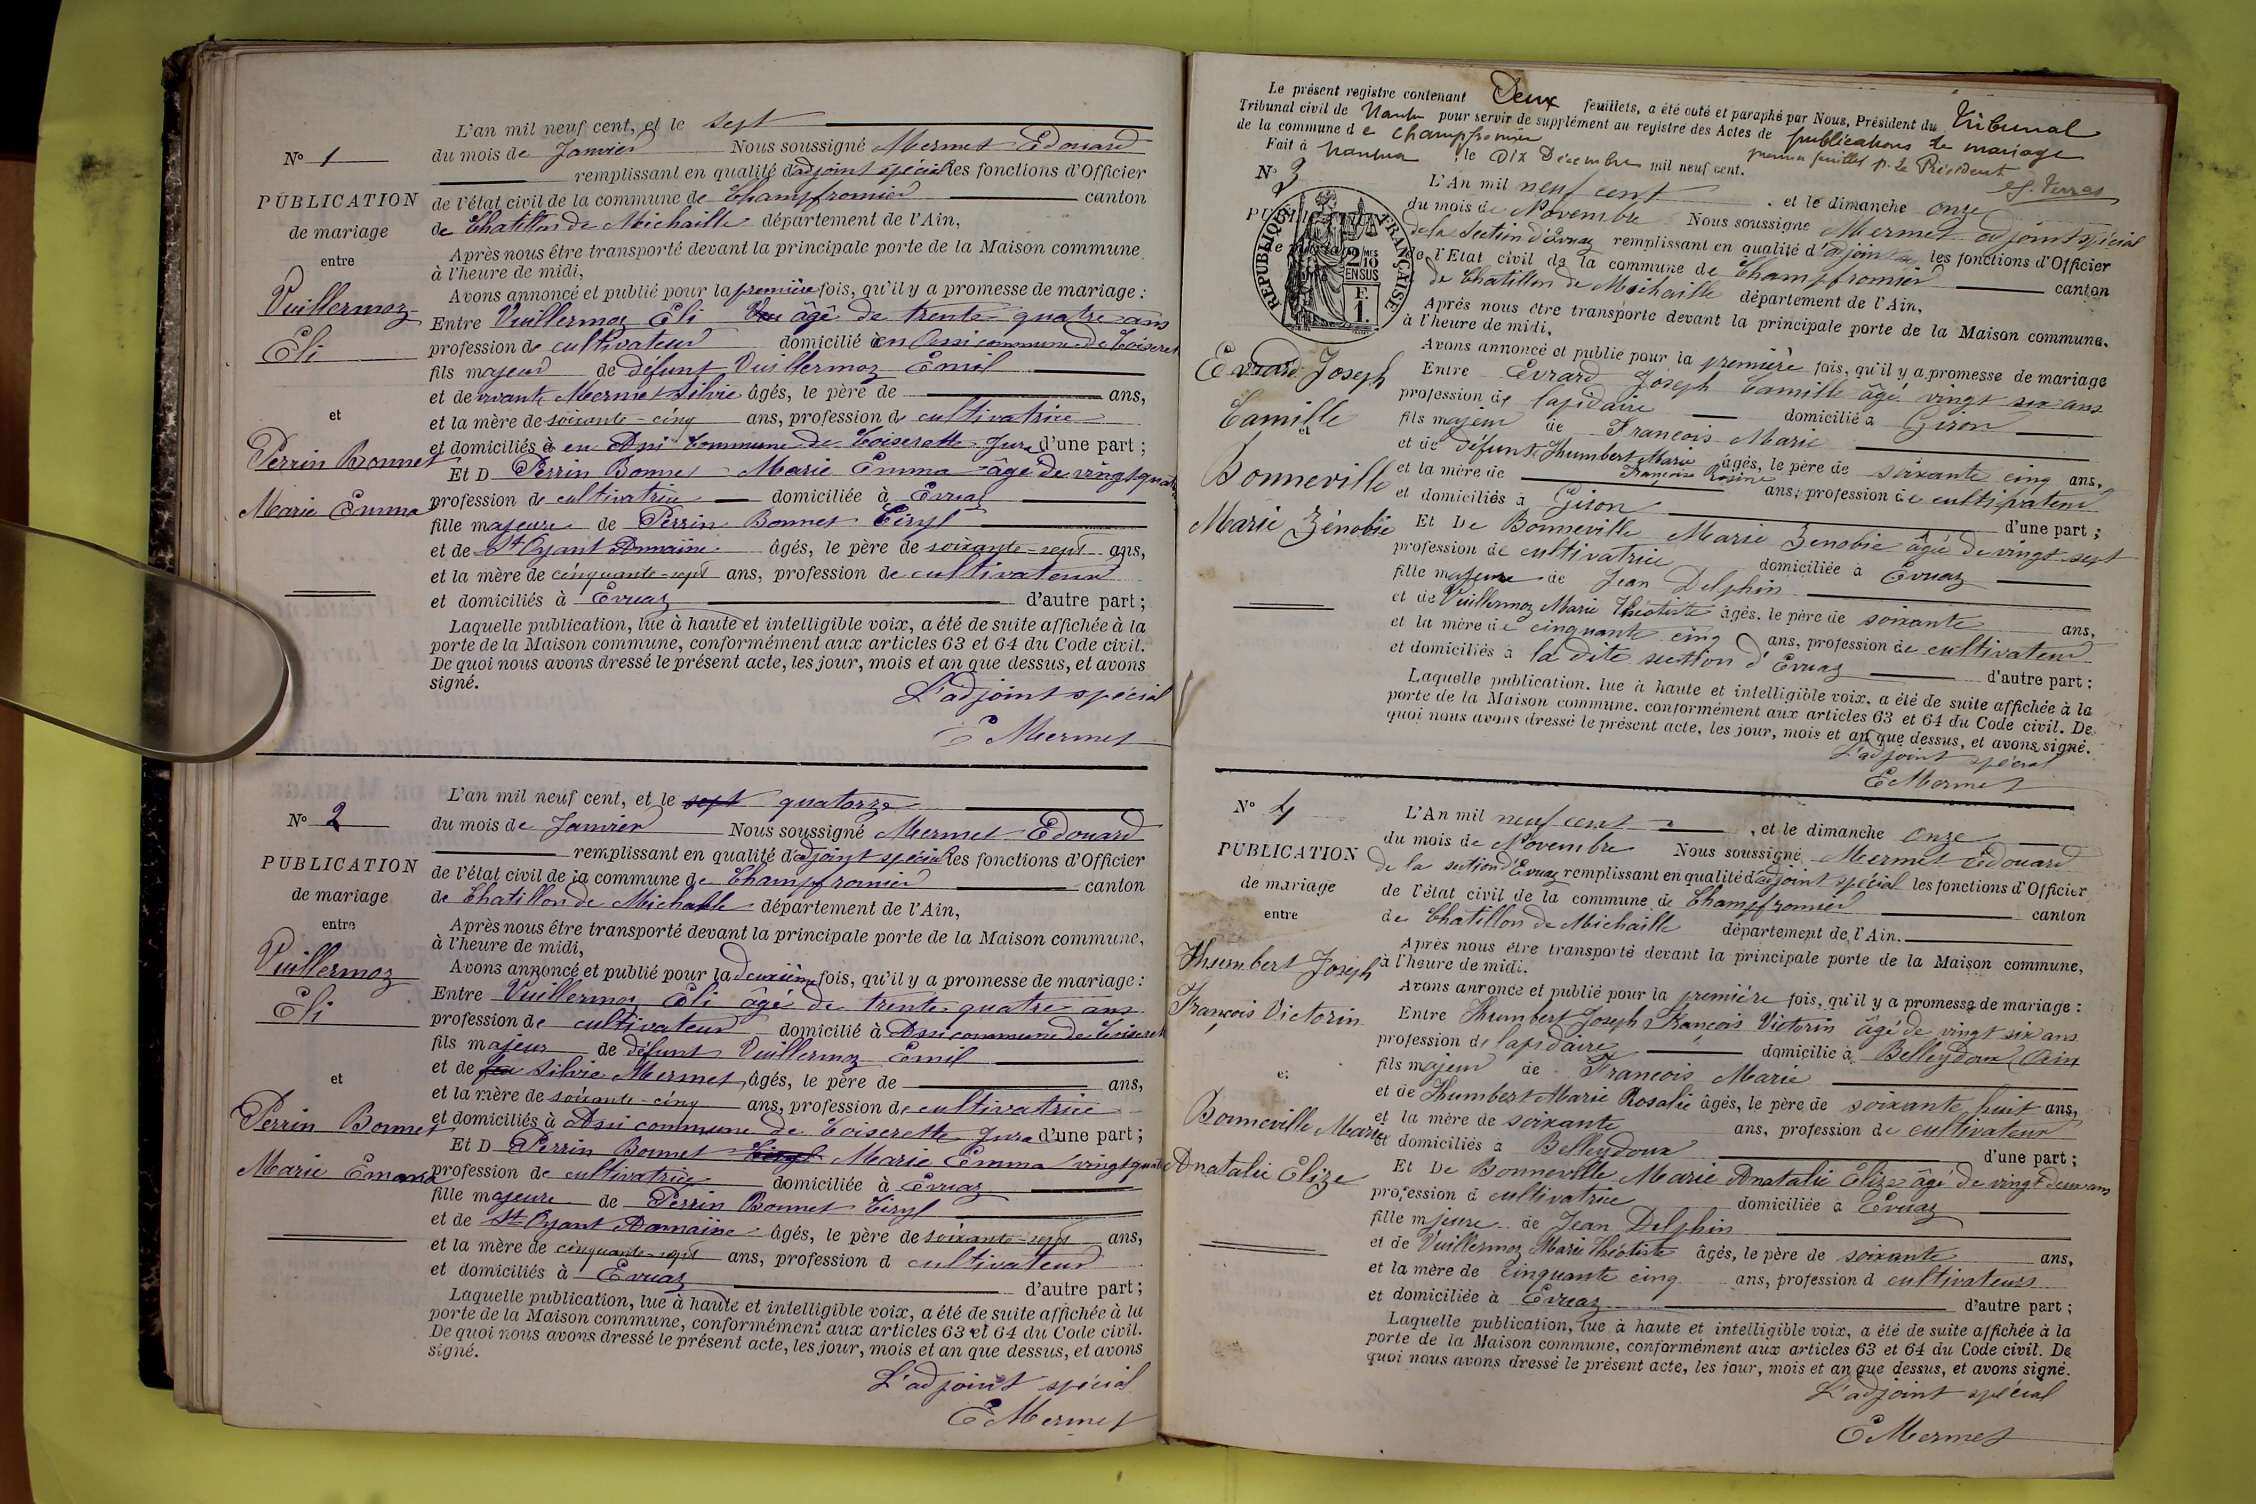 L'an mil neuf cent, et le sept
du mois de Janvier Nous soussigné Mermet Edouard
remplissant en qualité d'adjoint spécial les fonctions d'Officier
de l'état civil de la commune de Champfromier canton
de Chatillon de Michaille département de l'Ain,
Après nous être transporté devant la principale porte de la Maison commune,
à l'heure de midi,
Avons annoncé et publié pour la première fois, qu'il y a promesse de mariage :
Entre Vuillermoz Eli âgé de trente quatre ans
profession de cultivateur domicilié à commune de Coiserette
fils majeur de défunt Vuillermoz Emil
et de vivante Mermet Silvie âgés, le père de ans,
et la mère de soixante-cinq ans, profession de cultivatrice
et domiciliés à commune de Coiserette Jura d'une part ;
Et D Perrin Bonnet Marie Emma âgé de vingt quatre
profession de cultivatrice domiciliée à Evuaz
fille majeure de Perrin Bonnet Ciryl
et de St Oyant âgés, le père de soixante-sept ans,
et la mère de cinquante-sept ans, profession de cultivateur
et domiciliés à Evuaz d'autre part ;
Laquelle publication, lue à haute et intelligible voix, a été de suite affichée à la
porte de la Maison commune, conformément aux articles 63 et 64 du Code civil.
De quoi nous avons dressé le présent acte, les jour, mois et an que dessus, et avons
signé.
L'adjoint spécial
E Mermet
N° 1
PUBLICATION
de mariage
entre
Vuillermoz
Eli
et
Perrin Bonnet
Marie Emma
L'an mil neuf cent, et le sept quatorze
du mois de Janvier Nous soussigné Mermet Edouard
remplissant en qualité d'adjoint spécial les fonctions d'Officier
de l'état civil de la commune de Champfromier canton
de Chatillon de Michaille département de l'Ain,
Après nous être transporté devant la principale porte de la Maison commune,
à l'heure de midi,
Avons annoncé et publié pour la deuxième fois, qu'il y a promesse de mariage :
Entre Vuillermoz Eli âgé de trente quatre ans
profession de cultivateur domicilié à commune de Coiserette
fils majeur de défunt Vuillermoz Emil
et de Silvie Mermet, âgés, le père de ans,
et la mère de soixante-cinq ans, profession de cultivatrice
et domiciliés à commune de Coiserette Jura d'une part ;
Et D Perrin Bonnet Ciryl Marie Emma vingt quatre
profession de cultivatrice domiciliée à Evuaz
fille majeure de Perrin Bonnet Ciryl
et de St Oyant âgés, le père de soixante-sept ans,
et la mère de cinquante-sept ans, profession d cultivateur
et domiciliés à Evuaz d'autre part ;
Laquelle publication, lue à haute et intelligible voix, a été de suite affichée à la
porte de la Maison commune, conformément aux articles 63 et 64 du Code civil.
De quoi nous avons dressé le présent acte, les jour, mois et an que dessus, et avons
signé.
L'adjoint spécial
E Mermet
N° 2
PUBLICATION
de mariage
entre
Vuillermoz
Eli
et
Perrin Bonnet
Marie Emma
Le présent registre contenant Deux feuillets, a été coté et paraphé par Nous, Président du Tribunal
Tribunal civil de Nantua pour servir de supplément au registre des Actes de publications de mariage
de la commune de Champfromier premier feuillet p. le Président
Fait à Nantua, le Dix Décembre mil neuf cent.
RÉPUBLIQUE FRANÇAISE
2/10 MES
EN SUS
F.
1.
N° 3
L'An mil neuf cent, et le dimanche onze
du mois de Novembre Nous soussigné Mermet adjoint spécial
de la Section d'Evuaz remplissant en qualité d'adjoint les fonctions d'Officier
de l'Etat civil de la commune de Champfromier canton
de Chatillon de Michaille département de l'Ain,
Après nous être transporté devant la principale porte de la Maison commune,
à l'heure de midi,
Avons annoncé et publié pour la première fois, qu'il y a promesse de mariage
Entre Evrard Joseph Camille âgé vingt six ans
profession de lapidaire domicilié à Giron
fils majeur de François Marie
et de défunte Humbert Marie Françoise Rosine âgés, le père de soixante cinq ans,
et la mère de ans, profession de cultivateur
et domiciliés à Giron d'une part ;
Et De Bonneville Marie Zenobie âgée de vingt sept
profession de cultivatrice domiciliée à Evuaz
fille majeure de Jean Delphin
et de Vuillermoz Marie Théotiste âgés, le père de soixante ans,
et la mère de cinquante cinq ans, profession de cultivateur
et domiciliés à la dite section d'Evuaz d'autre part ;
Laquelle publication, lue à haute et intelligible voix, a été de suite affichée à la
porte de la Maison commune, conformément aux articles 63 et 64 du Code civil. De
quoi nous avons dressé le présent acte, les jour, mois et an que dessus, et avons signé.
L'adjoint spécial
E Mermet
Evrard Joseph
Camille
et
Bonneville
Marie Zénobie
N° 4
L'An mil neuf cent, et le dimanche onze
du mois de Novembre Nous soussigné Mermet Edouard
de la section d'Evuaz remplissant en qualité d'adjoint spécial les fonctions d'Officier
de l'état civil de la commune de Champfromier canton
de Chatillon de Michaille département de l'Ain.
Après nous être transporté devant la principale porte de la Maison commune,
à l'heure de midi.
Avons annoncé et publié pour la première fois, qu'il y a promesse de mariage :
Entre Humbert Joseph François Victorin âgé de vingt six ans
profession de lapidaire domicilié à Belleydoux Ain
fils majeur de François Marie
et de Humbert Marie Rosalie âgés, le père de soixante huit ans,
et la mère de soixante ans, profession de cultivateur
et domiciliés à Belleydoux d'une part ;
Et De Bonneville Marie Anatalie Elize âgé de vingt deux ans
profession d cultivatrice domiciliée à Evuaz
fille majeure de Jean Delphin
et de Vuillermoz Marie Théotiste âgés, le père de soixante ans,
et la mère de cinquante cinq ans, profession d cultivateurs
et domiciliée à Evuaz d'autre part ;
Laquelle publication, lue à haute et intelligible voix, a été de suite affichée à la
porte de la Maison commune, conformément aux articles 63 et 64 du Code civil. De
quoi nous avons dressé le présent acte, les jour, mois et an que dessus, et avons signé.
L'adjoint spécial
E Mermet
PUBLICATION
de mariage
entre
Humbert Joseph
François Victorin
et
Bonneville Marie
Anatalie Elize